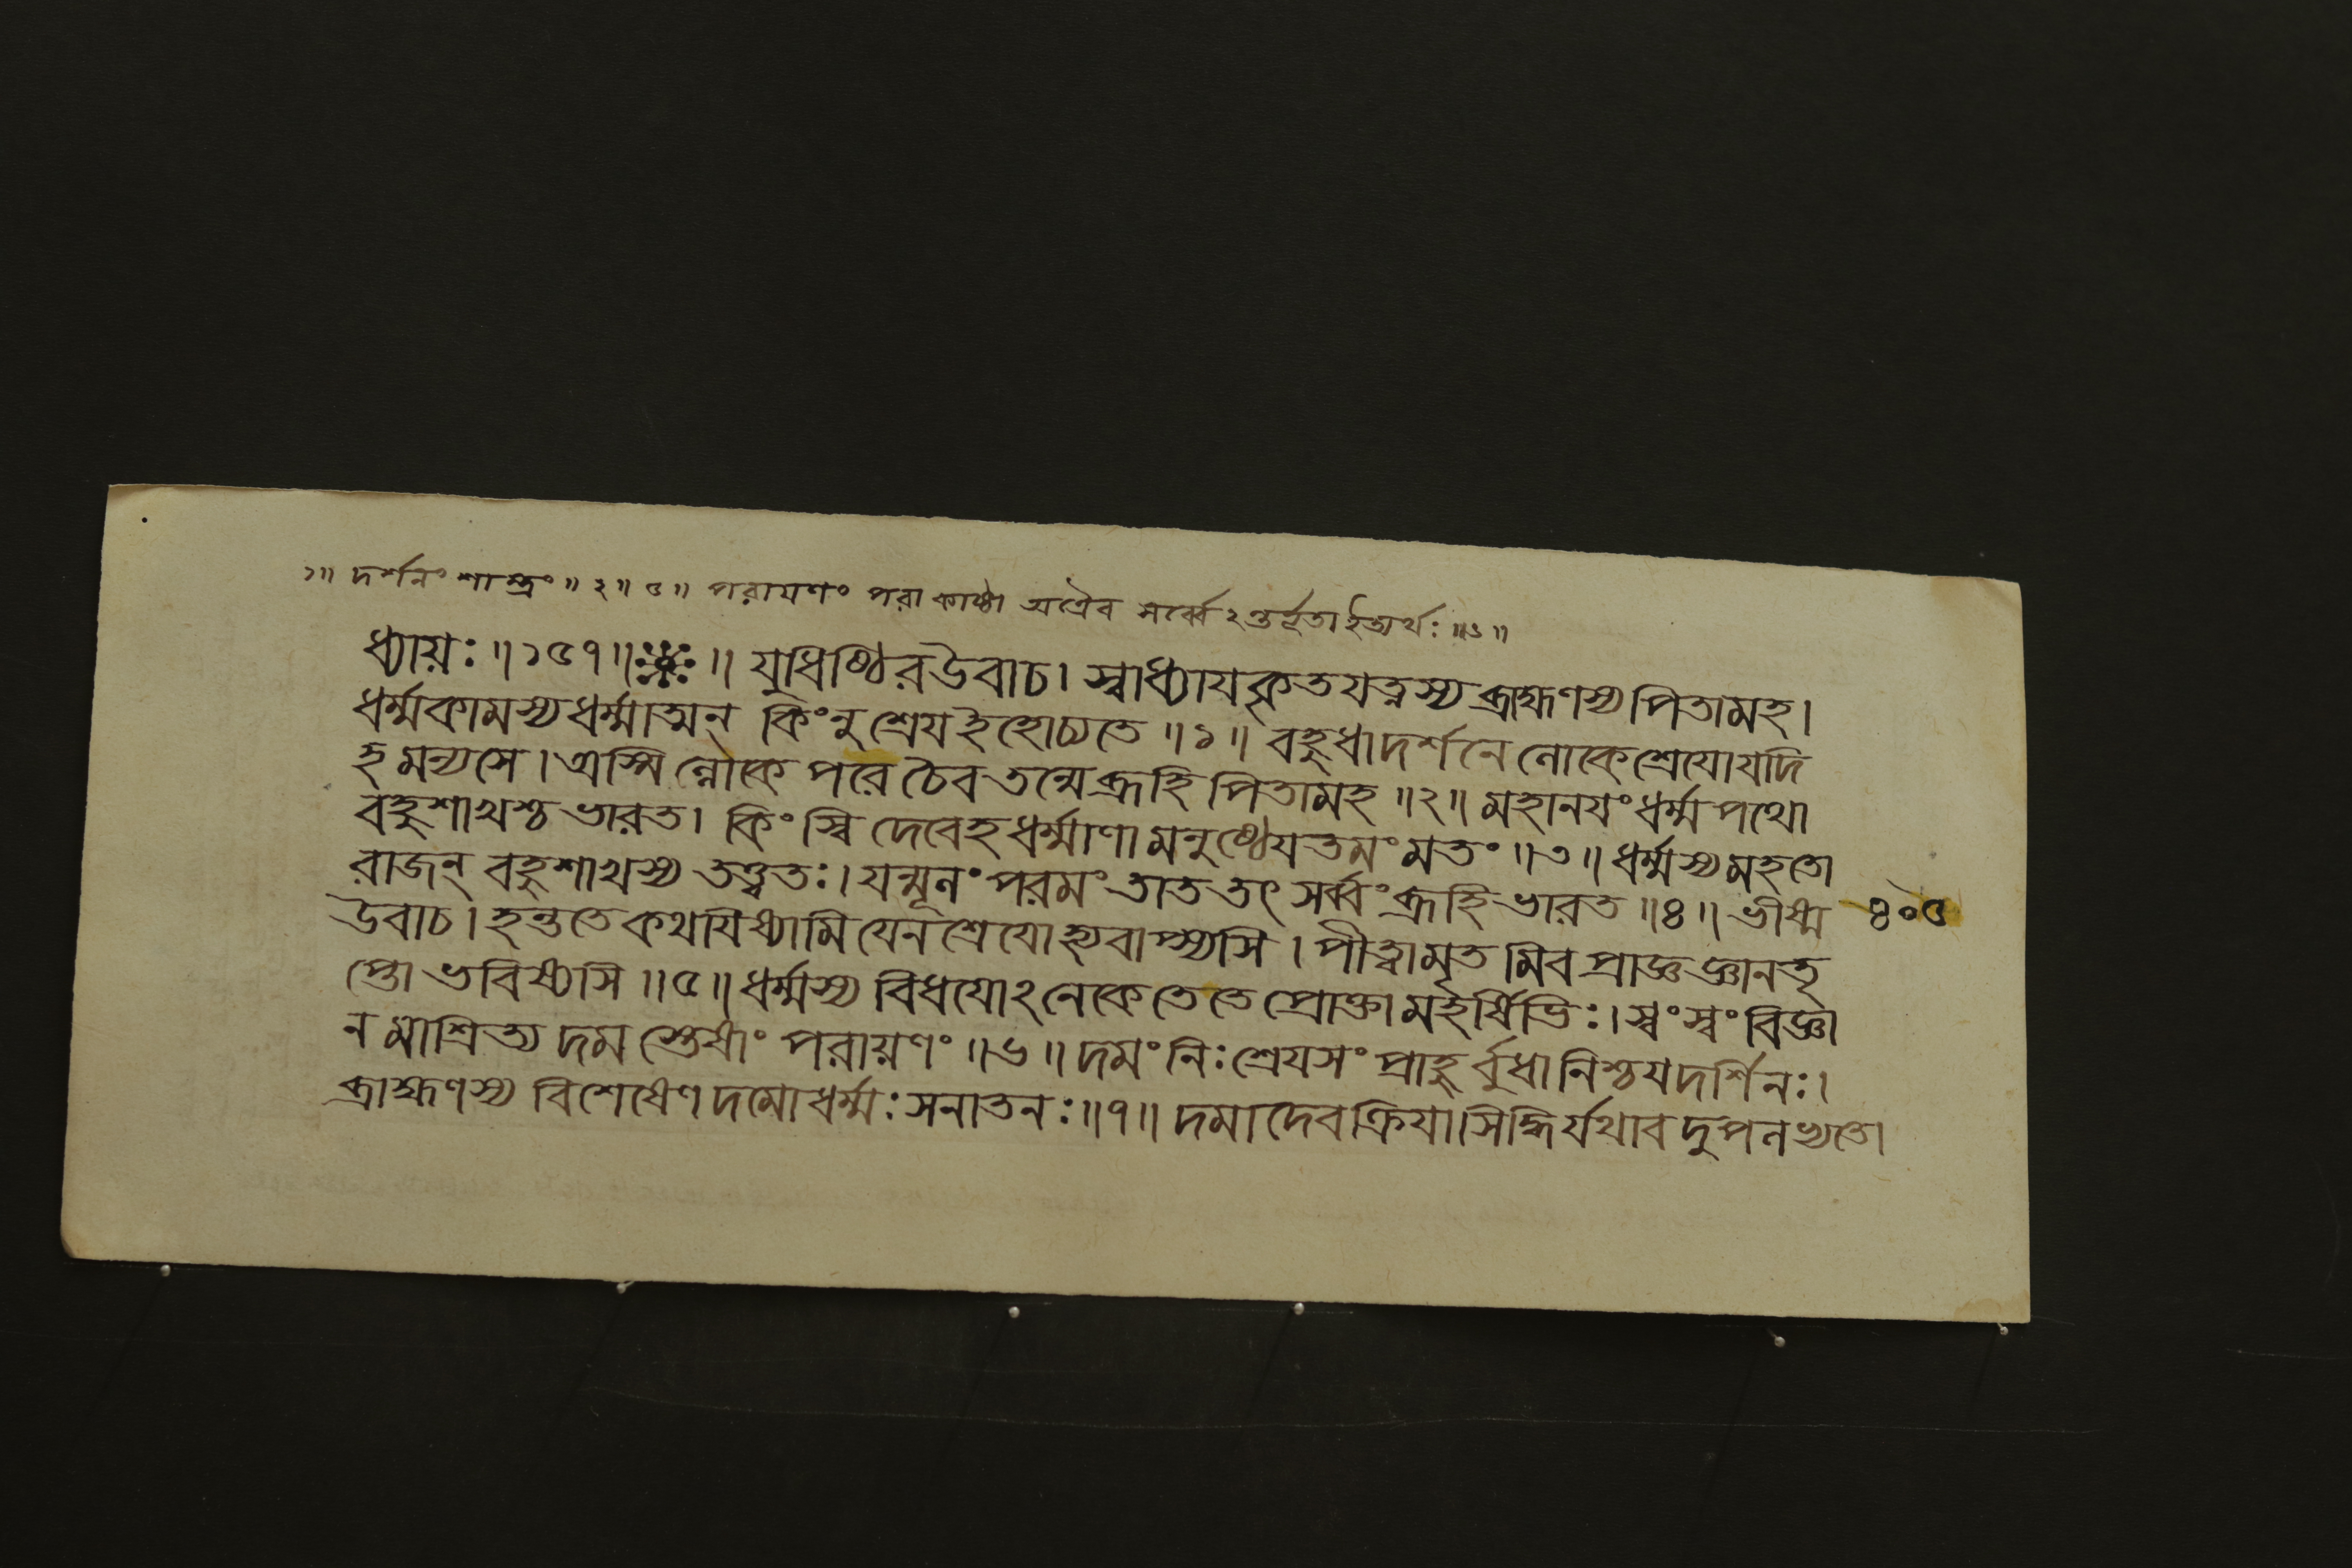 ১॥ দর্শনং শাস্ত্রং॥২॥৫॥ পরায়ণং পরা কাষ্ঠা অত্রৈব সর্ব্বেঽন্তর্ভূতা ইত্যর্থঃ॥৬॥
ধ্যায়ঃ॥১৫৭॥ ॥ যুধিষ্ঠির উবাচ। স্বাধ্যায কৃতযত্নস্য ব্রাহ্মণস্য পিতামহ।
ধর্ম্মকামস্য ধর্ম্মাত্মন্ কিংনু শ্রেয ইহোচ্যতে॥১॥ বহুধাদর্শনে লোকে শ্রেযোযদি
হ মন্যসে। অস্মিল্লোকে পরে চৈব তন্মে ব্রূহি পিতামহ॥২॥ মহানযং ধর্ম্মপথো
বহুশাখশ্চ ভারত। কিং স্বি দেবেহ ধর্ম্মাণা মনুষ্ঠেযতমং মতং॥৩॥ ধর্ম্মস্য মহতো
রাজন্ বহুশাখস্য তত্ত্বতঃ। যন্মূলং পরমং তাত তৎ সর্ব্বং ব্রূহি ভারত॥৪॥ ভীষ্ম
৪০৫
উবাচ। হন্ততে কথযিষ্যামি যেন শ্রেযো হ্যবাপ্স্যসি। পীত্বামৃত মিব প্রাজ্ঞ জ্ঞানতৃ
প্তো ভবিষ্যসি॥৫॥ ধর্ম্মস্য বিধযোঽনেকে তেতে প্রোক্তা মহর্ষিভিঃ। স্বংস্বং বিজ্ঞা
ন মাশ্রিত্য দম স্তেষাং পরায়ণং॥৬॥ দমং নিঃশ্রেযসং প্রাহু র্বৃধা নিশ্চযদর্শিনঃ।
ব্রাহ্মণস্য বিশেষেণ দমো ধর্ম্মঃ সনাতনঃ॥৭॥ দমা দেব ক্রিযা।সিদ্ধির্যথাব দুপলভ্যতে।